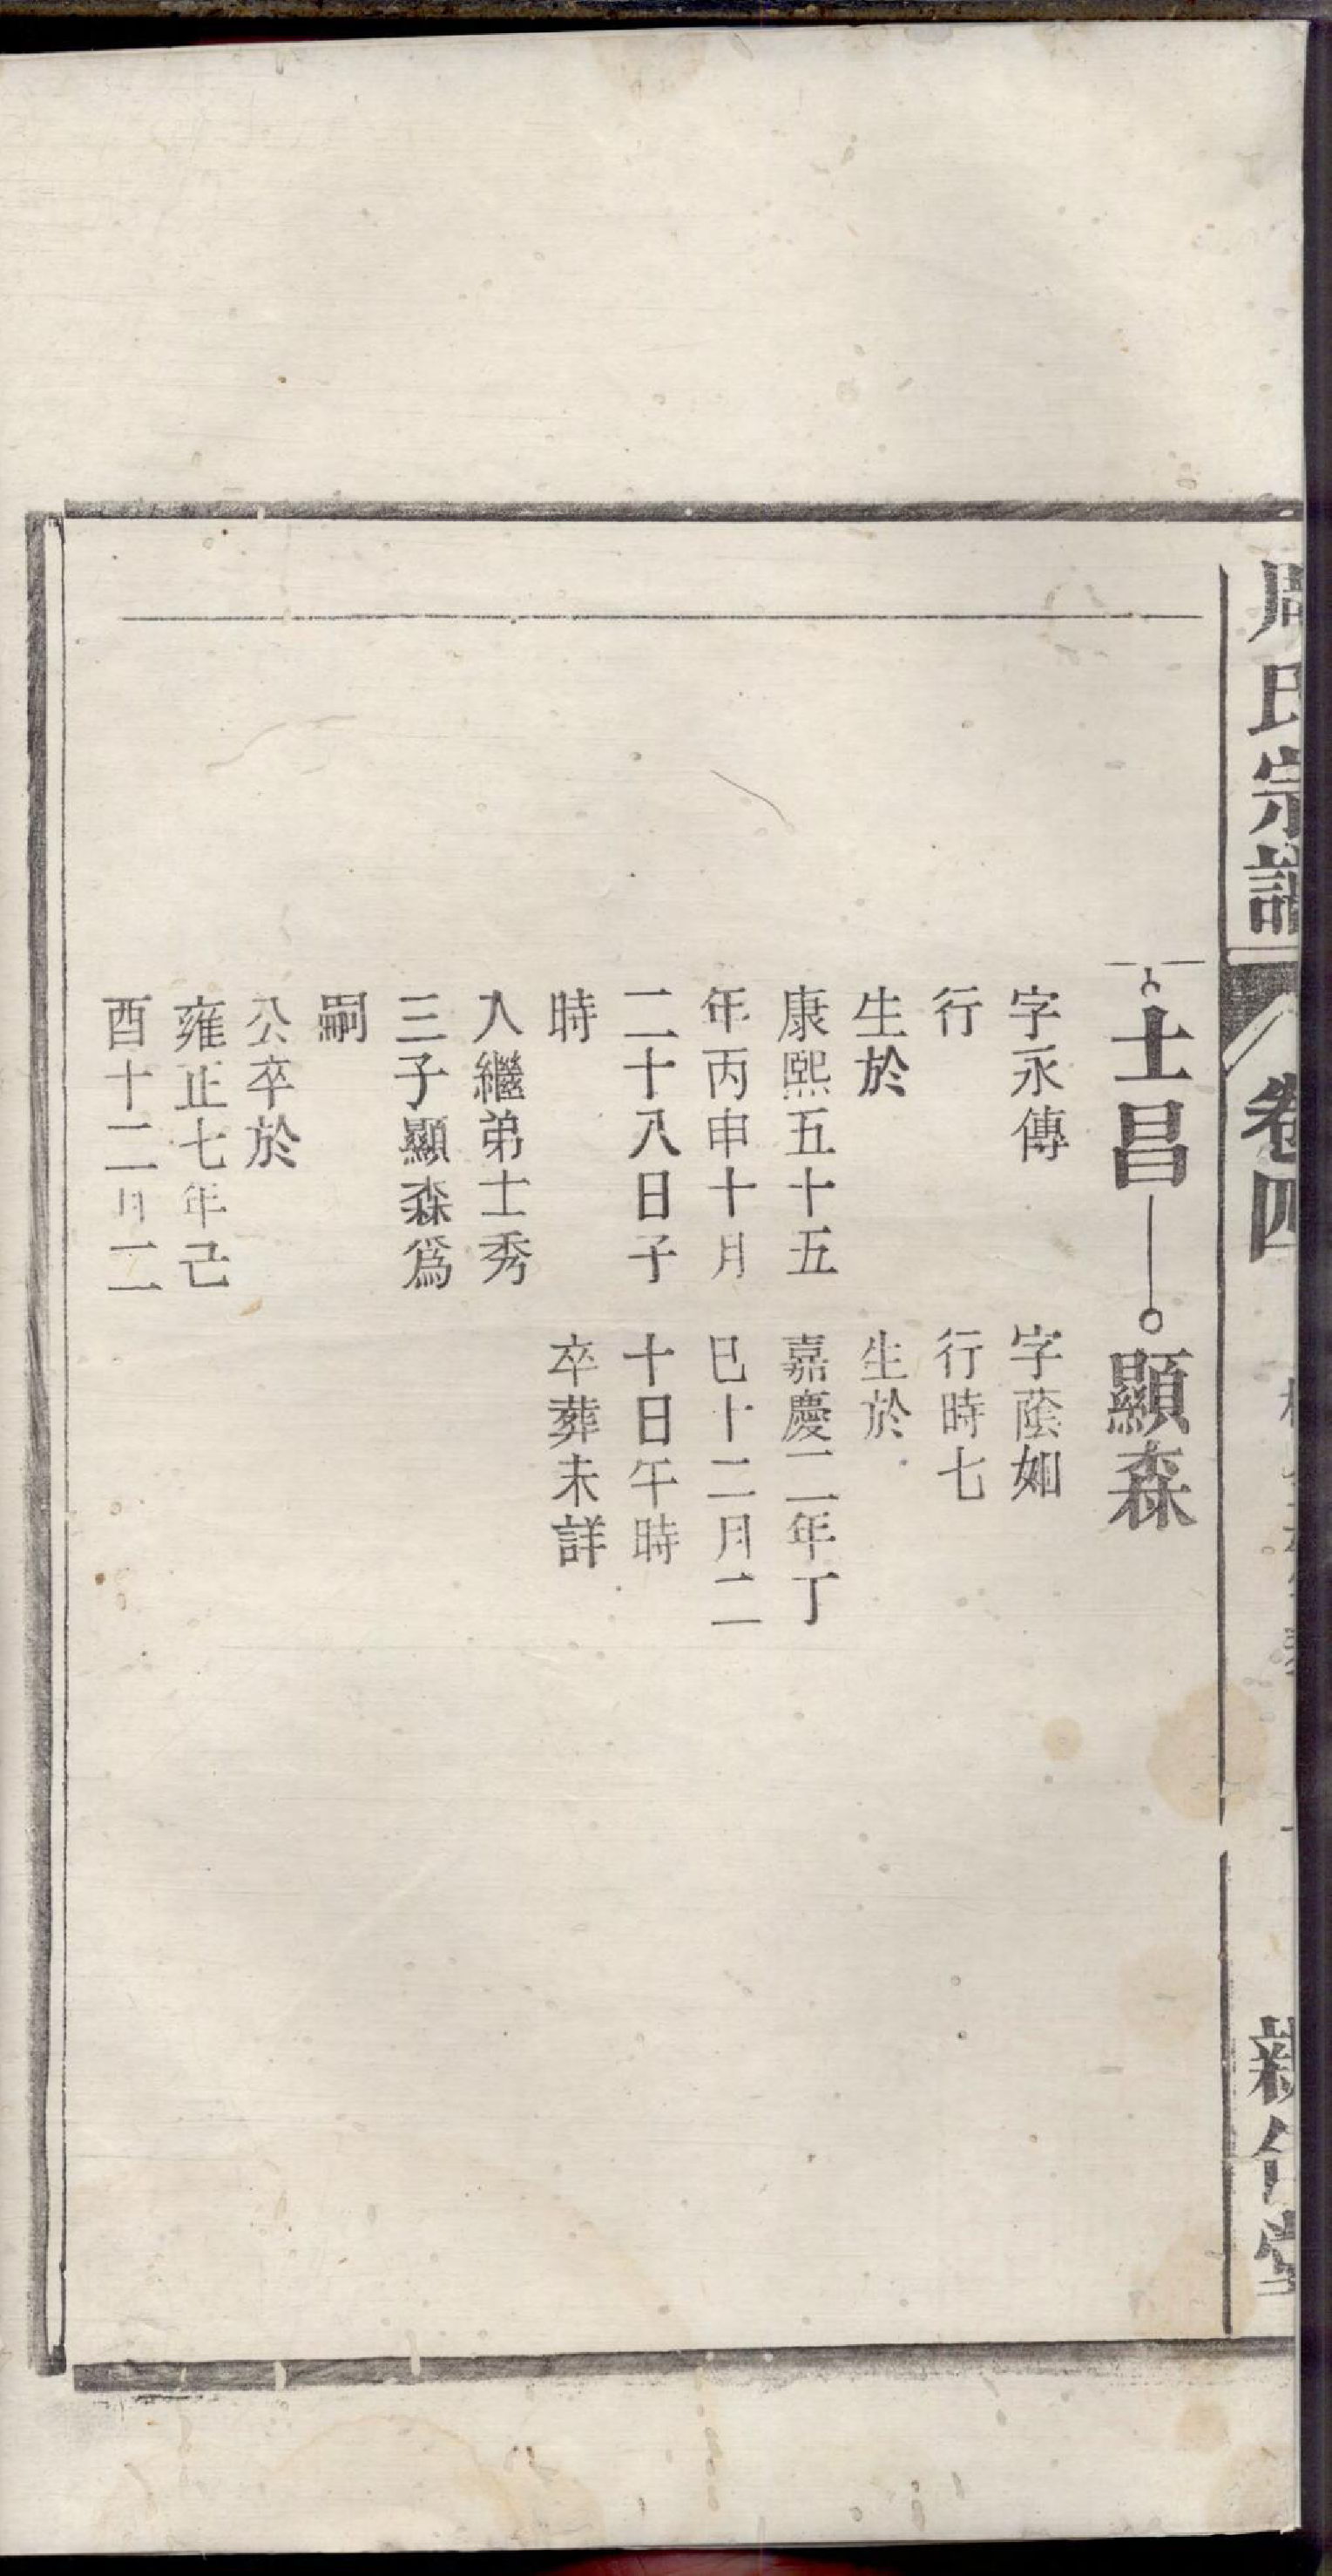 周氏宗譜
卷四
親合堂
士昌
字永傳
行
生於
康熙五十五
年丙申十月
二十八日子
時
入繼弟士秀
三子顯森爲
嗣
公卒於
雍正七年己
酉十二月二
顯森
字蔭如
行時七
生於
嘉慶二年丁
巳十二月二
十日午時
卒葬未詳